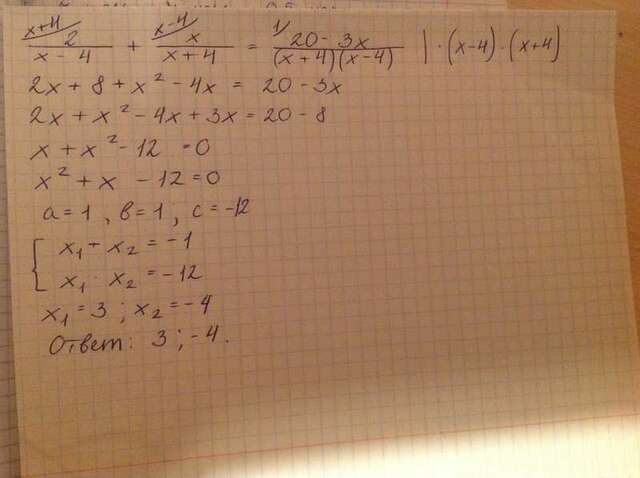 x+4/ 2/(x-4) + x-4/ x/(x+4) = 1/ (20-3x)/((x+4)(x-4)) | ·(x-4)·(x+4)
2x+8+x²-4x = 20-3x
2x+x²-4x+3x=20-8
x+x²-12 =0
x²+x -12=0
a=1, в=1; c=-12
{ x₁+x₂=-1
x₁·x₂=-12
x₁=3; x₂=-4
Ответ: 3;-4.